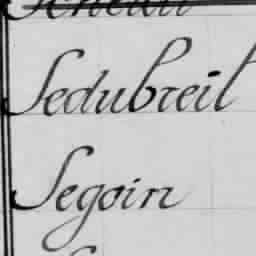 Sedubreil
Segoin